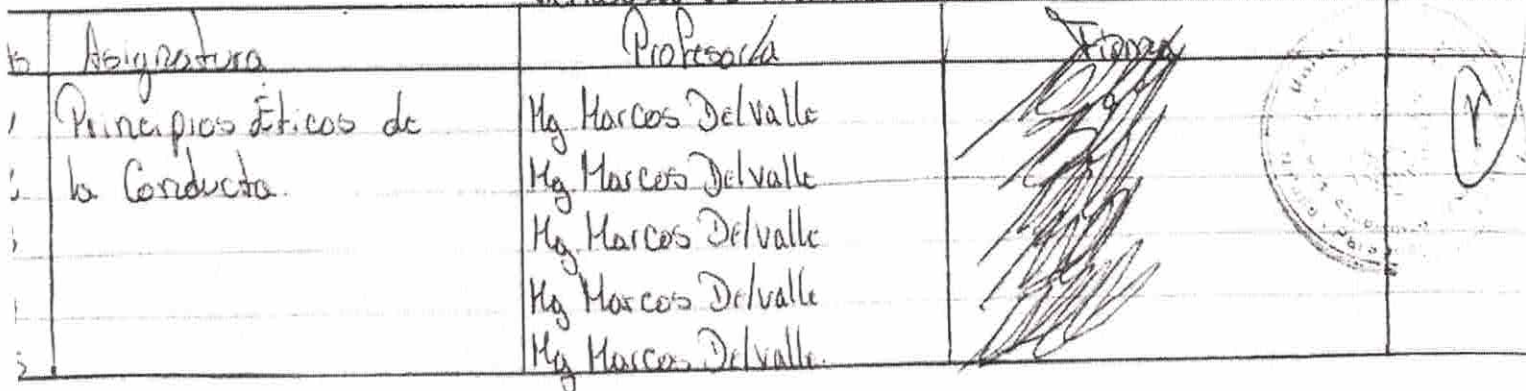 Asignatura Profesor/a Firma
Principios Éticos de Mg. Marcos Delvalle
la Conducta. Mg. Marcos Delvalle
Mg. Marcos Delvalle
Mg Marcos Delvalle
Mg Marcos Delvalle.